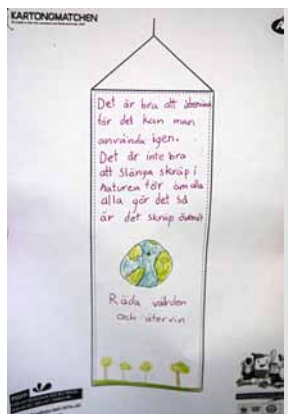 KARTONGMATCHEN
Det är bra att återvina
för det kan man
använda igen.
Det är inte bra
att slänga skräp i
naturen för om alla
alla gör det så
är det skräp överallt
Räda världen
och återvin